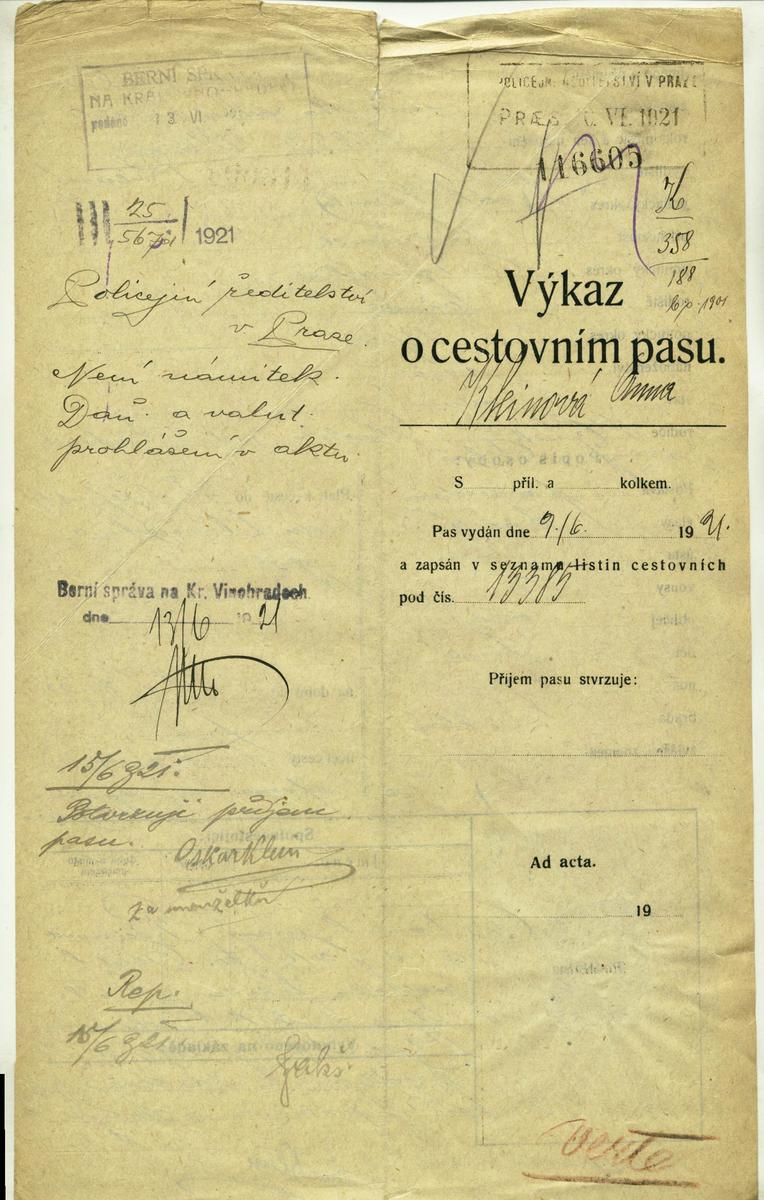 BERNÍ SPR
NA KRÁL
podáno 13 VI
III 25
567 1921
Policejní ředitelství
v Praze.
Není námitek.
Daň. a valut.
prohlášení v aktu.
Berní správa na Kr. Vinohradech.
dne 13/6 1921
15/6 921.
Potvrzuji příjem
pasu.
Oskar Klein
za manželku
Rep.
15/6 921
POLICEJNÍ ŘEDITELSTVÍ V PRAZE
PRÆS. VI. 1921
116605
K
358
188
Výkaz
o cestovním pasu.
Kleinová Anna
S příl. a kolkem.
Pas vydán dne 9./6. 19 21.
a zapsán v seznamu listin cestovních
pod čís. 13385
Příjem pasu stvrzuje:
Ad acta.
19
verte